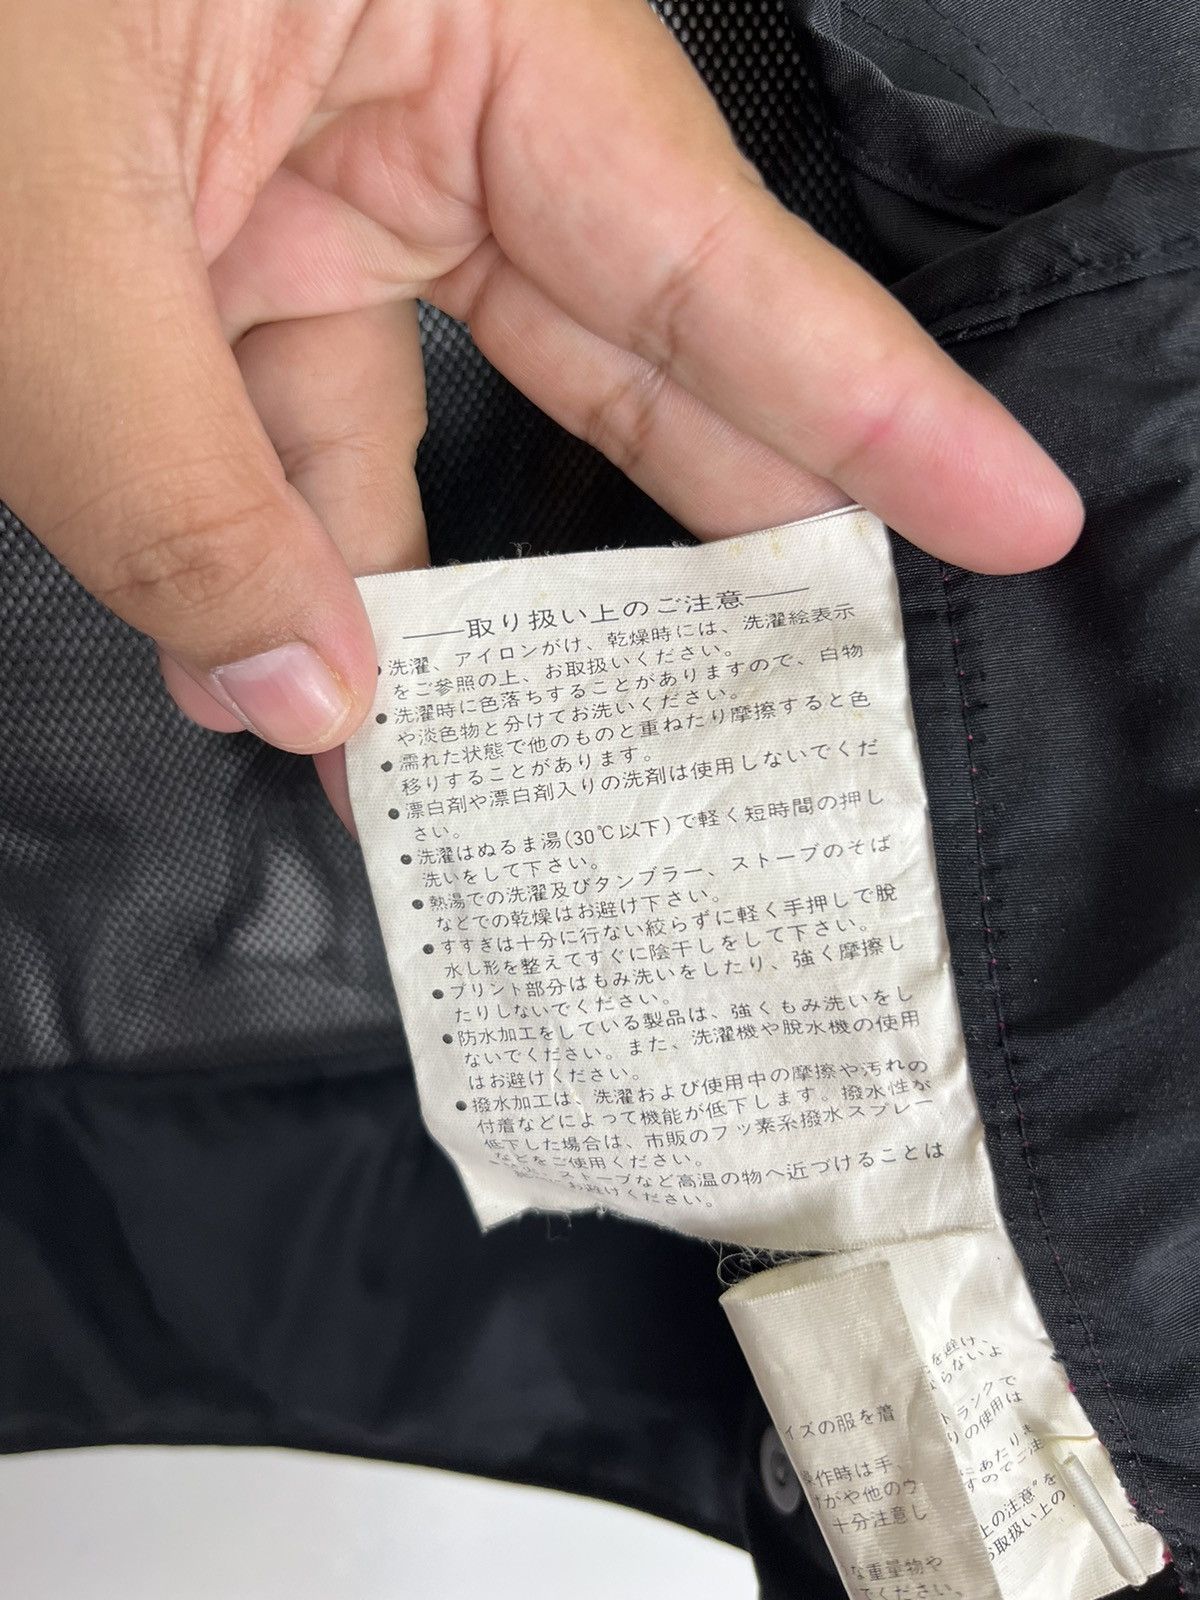 取り扱い上のご注意
●洗濯、アイロンがけ、乾燥時には、洗濯絵表示
をご参照の上、お取扱いください。
●洗濯時に色落ちすることがありますので、白物
や淡色物と分けてお洗いください。
●濡れた状態で他のものと重ねたり摩擦すると色
移りすることがあります。
●漂白剤や漂白剤入りの洗剤は使用しないでくだ
さい。
●洗濯はぬるま湯(30℃以下)で軽く短時間の押し
洗いをして下さい。
●熱湯での洗濯及びタンブラー、ストーブのそば
などでの乾燥はお避け下さい。
●すすぎは十分に行ない絞らずに軽く手押しで脱
水し形を整えてすぐに陰干しをして下さい。
●プリント部分はもみ洗いをしたり、強く摩擦し
たりしないでください。
●防水加工をしている製品は、強くもみ洗いをし
ないでください。また、洗濯機や脱水機の使用
はお避けください。
●撥水加工は、洗濯および使用中の摩擦や汚れの
付着などによって機能が低下します。撥水性が
低下した場合は、市販のフッ素系撥水スプレー
などをご使用ください。
ストーブなど高温の物へ近づけることは
お避けください。
を避け、
らないよ
トランクで
りの使用は
にあたりま
すのでご注
上の注意"を
お取扱い上の
イズの服を着
操作時は手、
けがや他のウ
十分注意し
な重量物や
でください。